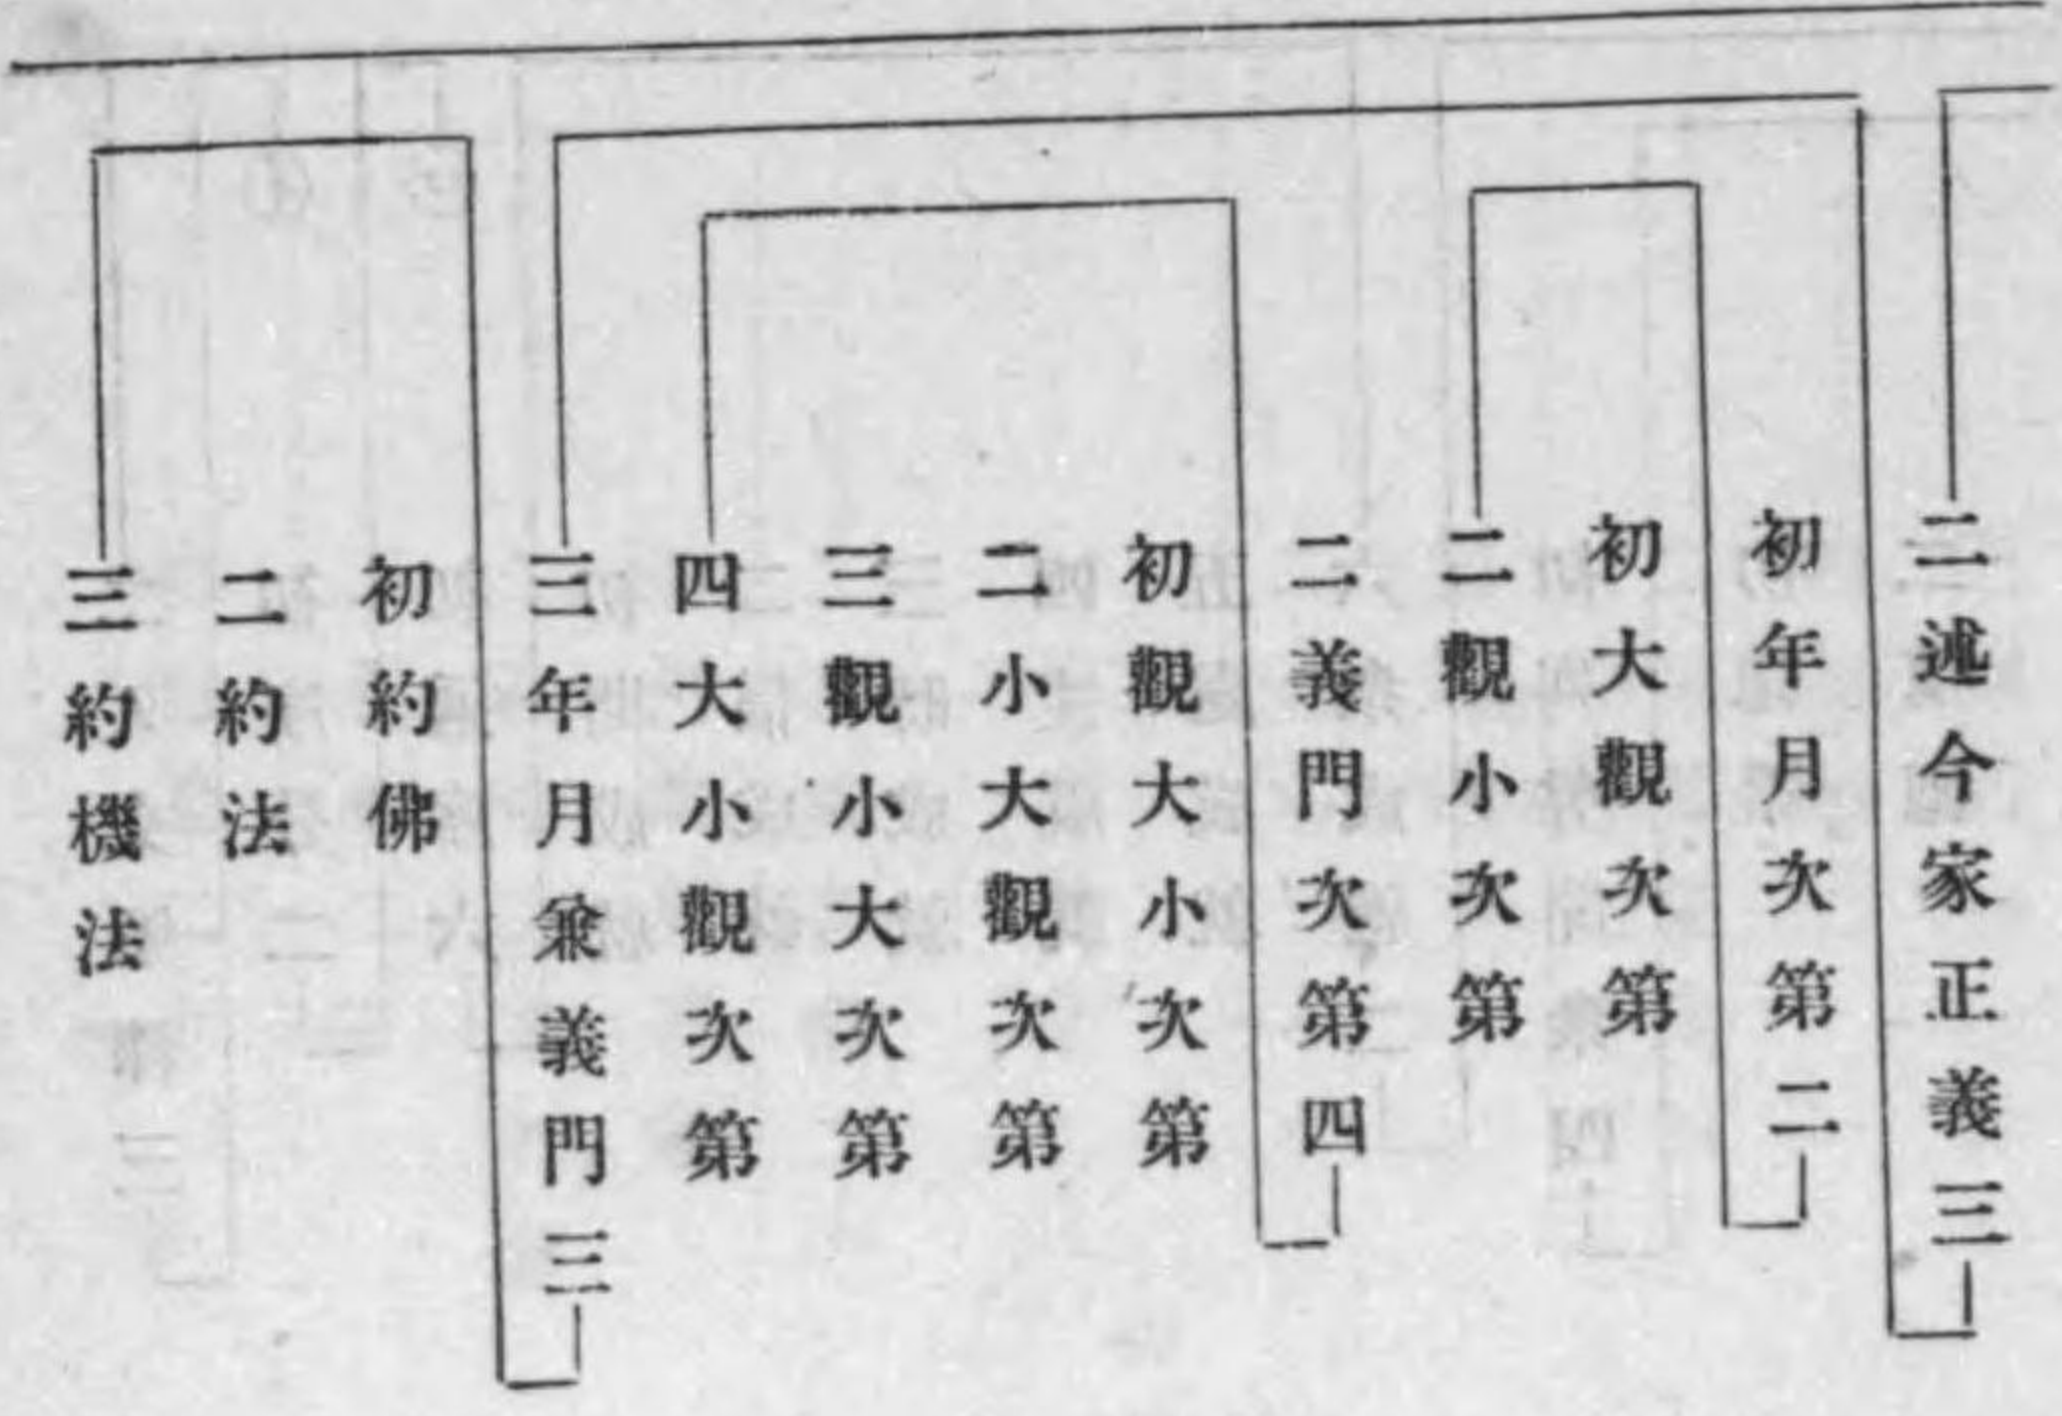 二述今家正義三
初年月次第二
初大觀次第
二觀小次第
二義門次第四
初觀大小次第
二小大觀次第
三觀小大次第
四大小觀次第
三年月兼義門三
初約佛
二約法
三約機法